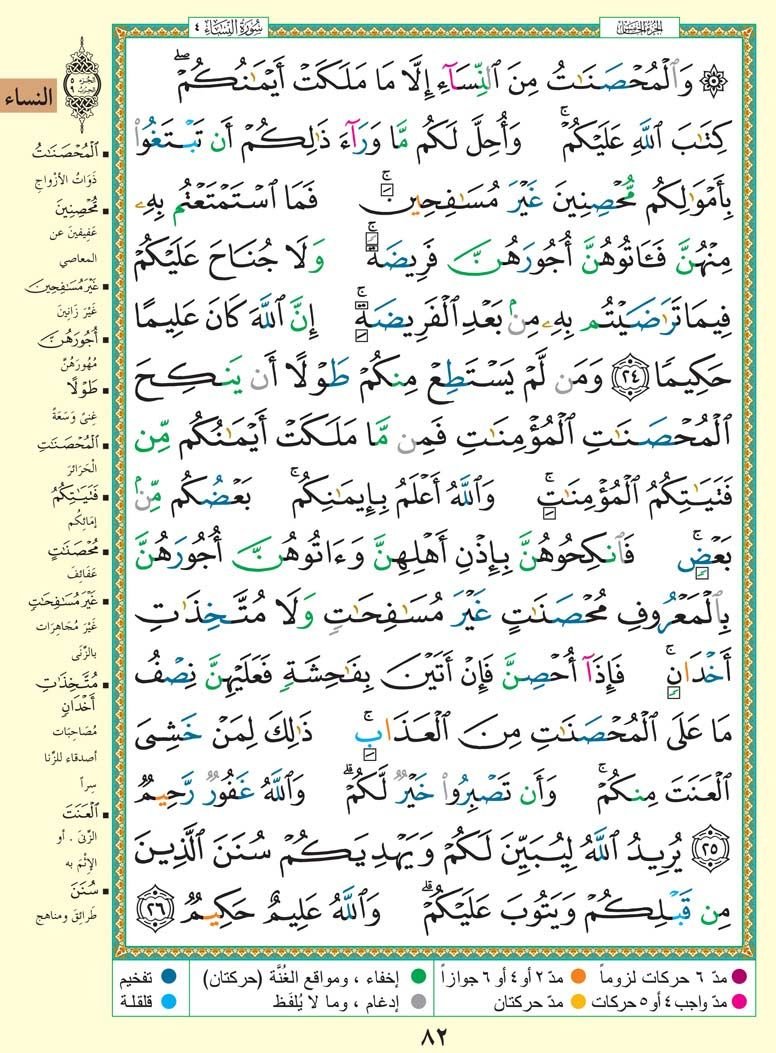 سُورَةُ النِّسَاءِ ٤
الجزء الخامس
۞ وَٱلْمُحْصَنَـٰتُ مِنَ ٱلنِّسَآءِ إِلَّا مَا مَلَكَتْ أَيْمَـٰنُكُمْ ۖ
كِتَـٰبَ ٱللَّهِ عَلَيْكُمْ ۚ وَأُحِلَّ لَكُم مَّا وَرَآءَ ذَٰلِكُمْ أَن تَبْتَغُوا۟
بِأَمْوَٰلِكُم مُّحْصِنِينَ غَيْرَ مُسَـٰفِحِينَ ۚ فَمَا ٱسْتَمْتَعْتُم بِهِۦ
مِنْهُنَّ فَـَٔاتُوهُنَّ أُجُورَهُنَّ فَرِيضَةً ۚ وَلَا جُنَاحَ عَلَيْكُمْ
فِيمَا تَرَٰضَيْتُم بِهِۦ مِنۢ بَعْدِ ٱلْفَرِيضَةِ ۚ إِنَّ ٱللَّهَ كَانَ عَلِيمًا
حَكِيمًا ٢٤ وَمَن لَّمْ يَسْتَطِعْ مِنكُمْ طَوْلًا أَن يَنكِحَ
ٱلْمُحْصَنَـٰتِ ٱلْمُؤْمِنَـٰتِ فَمِن مَّا مَلَكَتْ أَيْمَـٰنُكُم مِّن
فَتَيَـٰتِكُمُ ٱلْمُؤْمِنَـٰتِ ۚ وَٱللَّهُ أَعْلَمُ بِإِيمَـٰنِكُم ۚ بَعْضُكُم مِّنۢ
بَعْضٍ ۚ فَٱنكِحُوهُنَّ بِإِذْنِ أَهْلِهِنَّ وَءَاتُوهُنَّ أُجُورَهُنَّ
بِٱلْمَعْرُوفِ مُحْصَنَـٰتٍ غَيْرَ مُسَـٰفِحَـٰتٍ وَلَا مُتَّخِذَٰتِ
أَخْدَانٍ ۚ فَإِذَآ أُحْصِنَّ فَإِنْ أَتَيْنَ بِفَـٰحِشَةٍ فَعَلَيْهِنَّ نِصْفُ
مَا عَلَى ٱلْمُحْصَنَـٰتِ مِنَ ٱلْعَذَابِ ۚ ذَٰلِكَ لِمَنْ خَشِىَ
ٱلْعَنَتَ مِنكُمْ ۚ وَأَن تَصْبِرُوا۟ خَيْرٌ لَّكُمْ ۗ وَٱللَّهُ غَفُورٌ رَّحِيمٌ
٢٥ يُرِيدُ ٱللَّهُ لِيُبَيِّنَ لَكُمْ وَيَهْدِيَكُمْ سُنَنَ ٱلَّذِينَ
مِن قَبْلِكُمْ وَيَتُوبَ عَلَيْكُمْ ۗ وَٱللَّهُ عَلِيمٌ حَكِيمٌ ٢٦
النساء
الجزء ٥
الحزب ٩
ٱلْمُحْصَنَـٰتُ
ذَوَاتُ الأَزْوَاجِ
مُحْصِنِينَ
عَفِيفِينَ عن
المعاصي
غَيْرَ مُسَـٰفِحِينَ
غَيْرَ زَانِينَ
أُجُورَهُنَّ
مُهُورَهُنَّ
طَوْلًا
غِنىً وَسَعَةً
ٱلْمُحْصَنَـٰتِ
الحَرَائِرَ
فَتَيَـٰتِكُمُ
إمَائِكُم
مُحْصَنَـٰتٍ
عَفَائِفَ
غَيْرَ مُسَـٰفِحَـٰتٍ
غَيْرَ مُجَاهِرَات
بالزِّنَى
مُتَّخِذَٰتِ
أَخْدَانٍ
مُصَاحِبَات
أصدقاء للزِّنا
سِراً
ٱلْعَنَتَ
الزِّنَى . أو
الإِثْمَ به
سُنَنَ
طَرائِقَ ومناهج
مدّ ٦ حركات لزوماً
مدّ ٢ أو ٤ أو ٦ جوازاً
إخفاء ، ومواقع الغُنَّة (حركتان)
تفخيم
مدّ واجب ٤ أو ٥ حركات
مدّ حركتان
إدغام ، وما لا يُلفَظ
قلقلة
٨٢